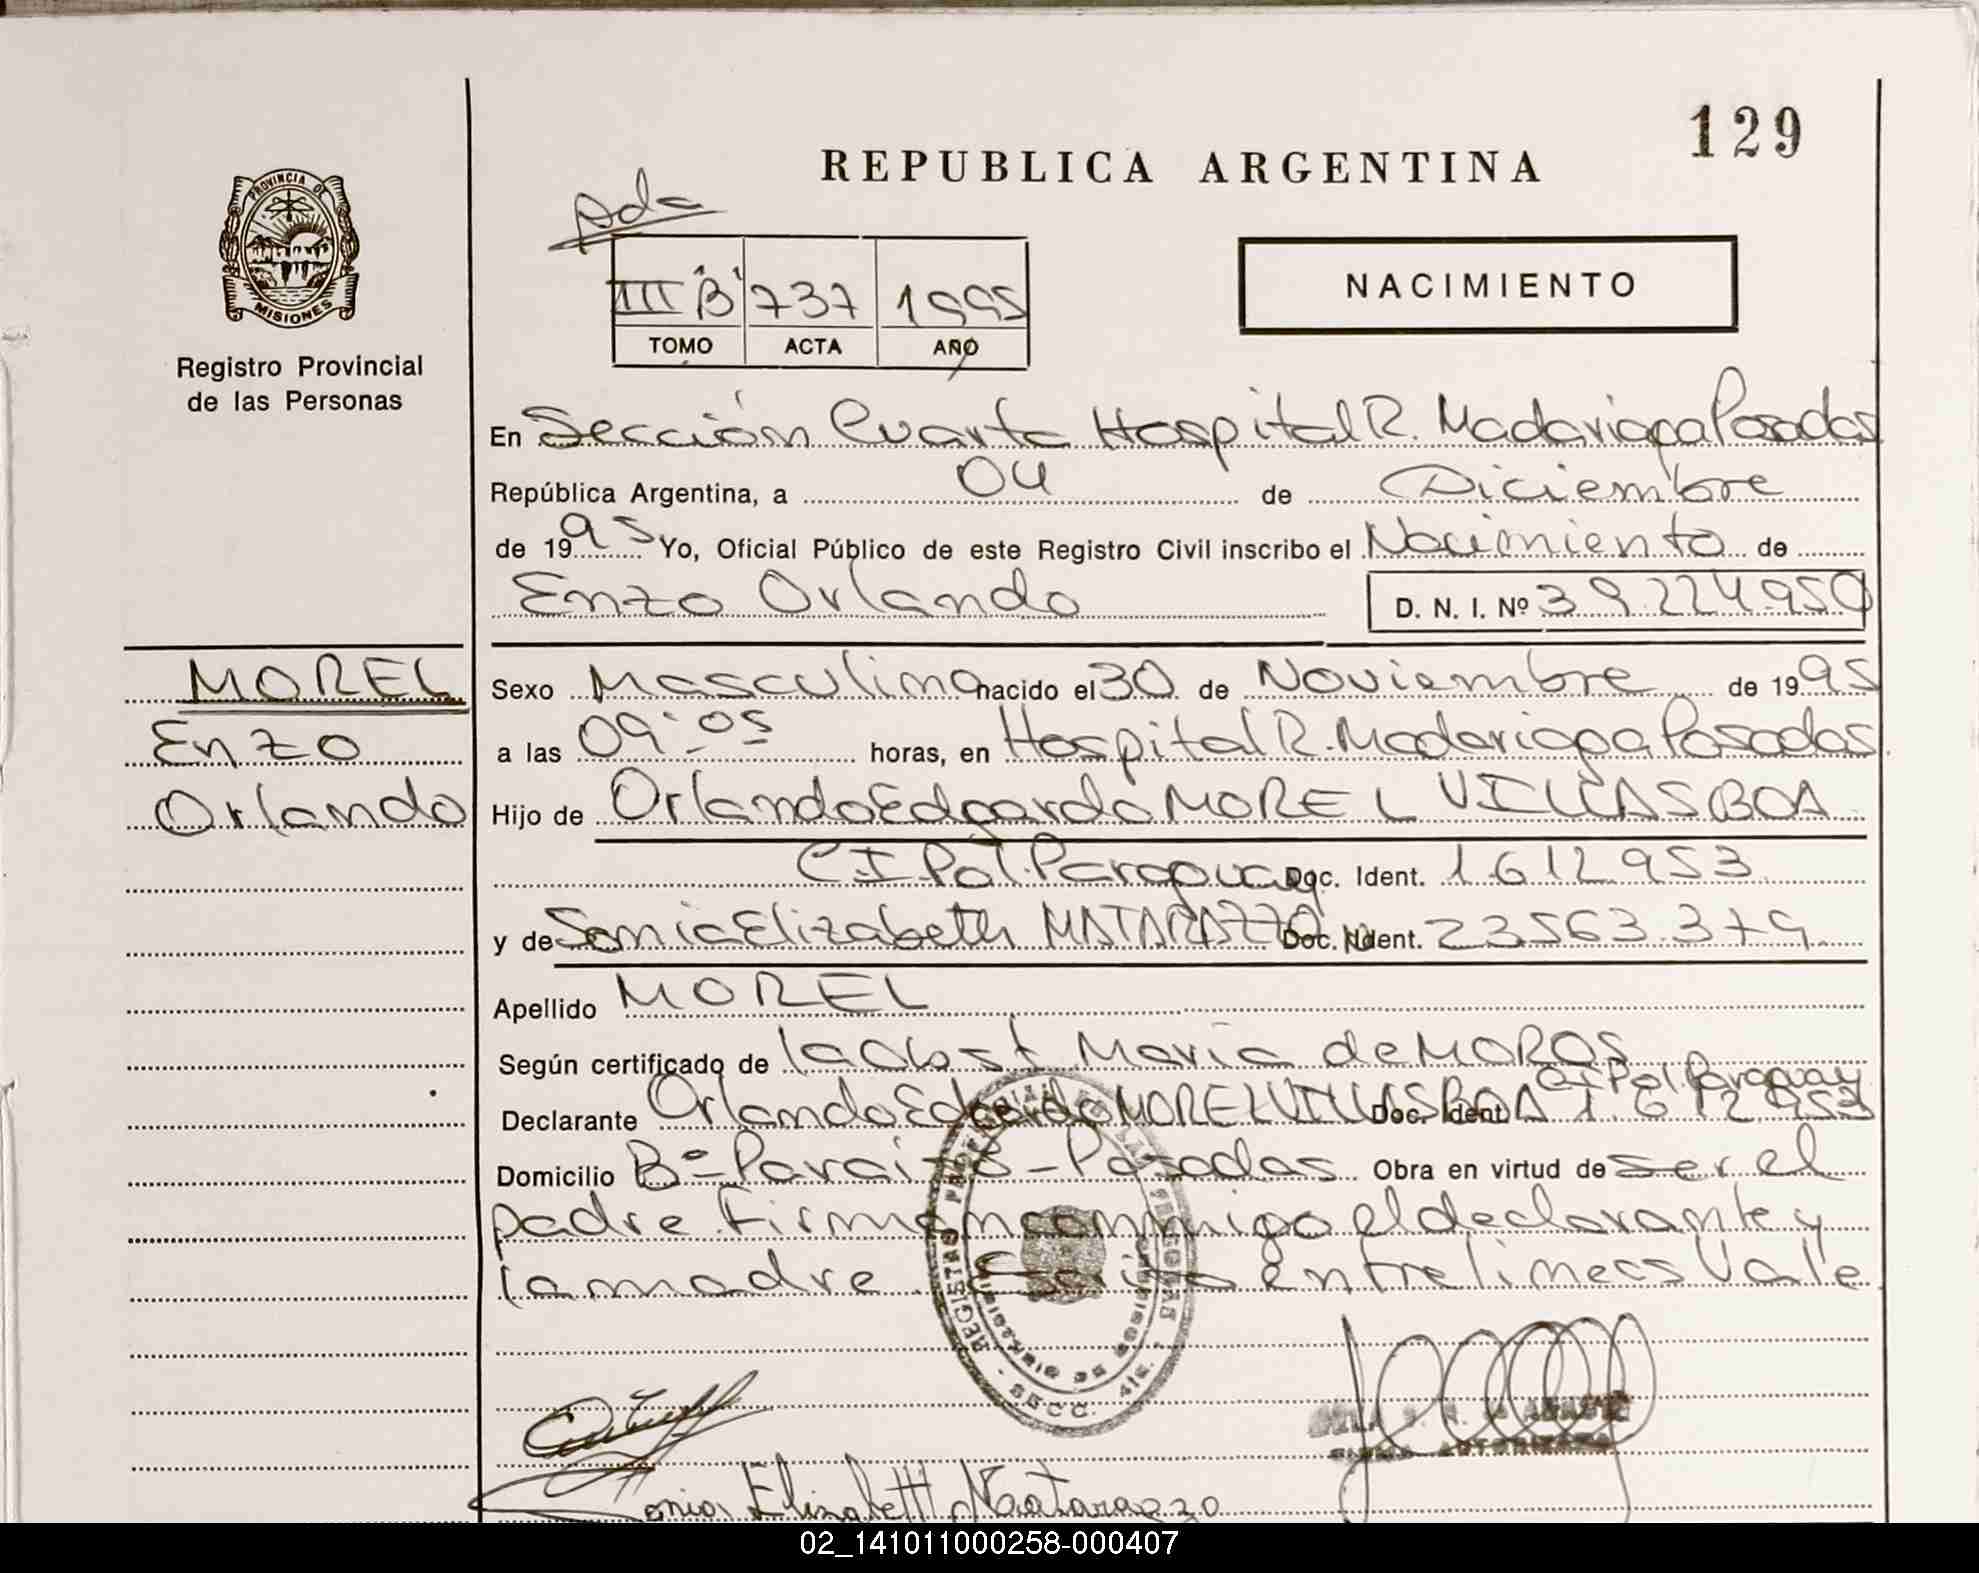 129
REPUBLICA ARGENTINA
PROVINCIA DE
MISIONES
Registro Provincial
de las Personas
III "B" 737 1995
TOMO ACTA AÑO
NACIMIENTO
En Sección Cuarta Hospital R. Madariaga Posadas
República Argentina, a 04 de Diciembre
de 1995 Yo, Oficial Público de este Registro Civil inscribo el Nacimiento de
Enzo Orlando D. N. I. Nº 39.224.950
MOREL
Enzo
Orlando
Sexo Masculino nacido el 30 de Noviembre de 1995
a las 09:05 horas, en Hospital R. Madariaga Posadas.
Hijo de Orlando Edgardo MOREL VILLASBOA
C I Pol. Paraguay Doc. Ident. 1.612.953
y de Sonia Elizabeth MATARAZZO Doc. Ident. 23.563.379
Apellido MOREL
Según certificado de la Obst María de MOROS
C I Pol. Paraguay
Declarante Orlando Edgardo MOREL VILLASBOA Doc. Ident. 1.612.953
Domicilio Bº- Paraiso - Posadas. Obra en virtud de ser el
padre. Firman conmigo el declarante y
la madre. Escrito entre lineas Vale.
REGISTRO PROVINCIAL DE LAS PERSONAS
MINISTERIO DE GOBIERNO
SECC. 4ta.
FIRMA AUTORIZADA
Sonia Elizabeth Matarazzo
02_141011000258-000407